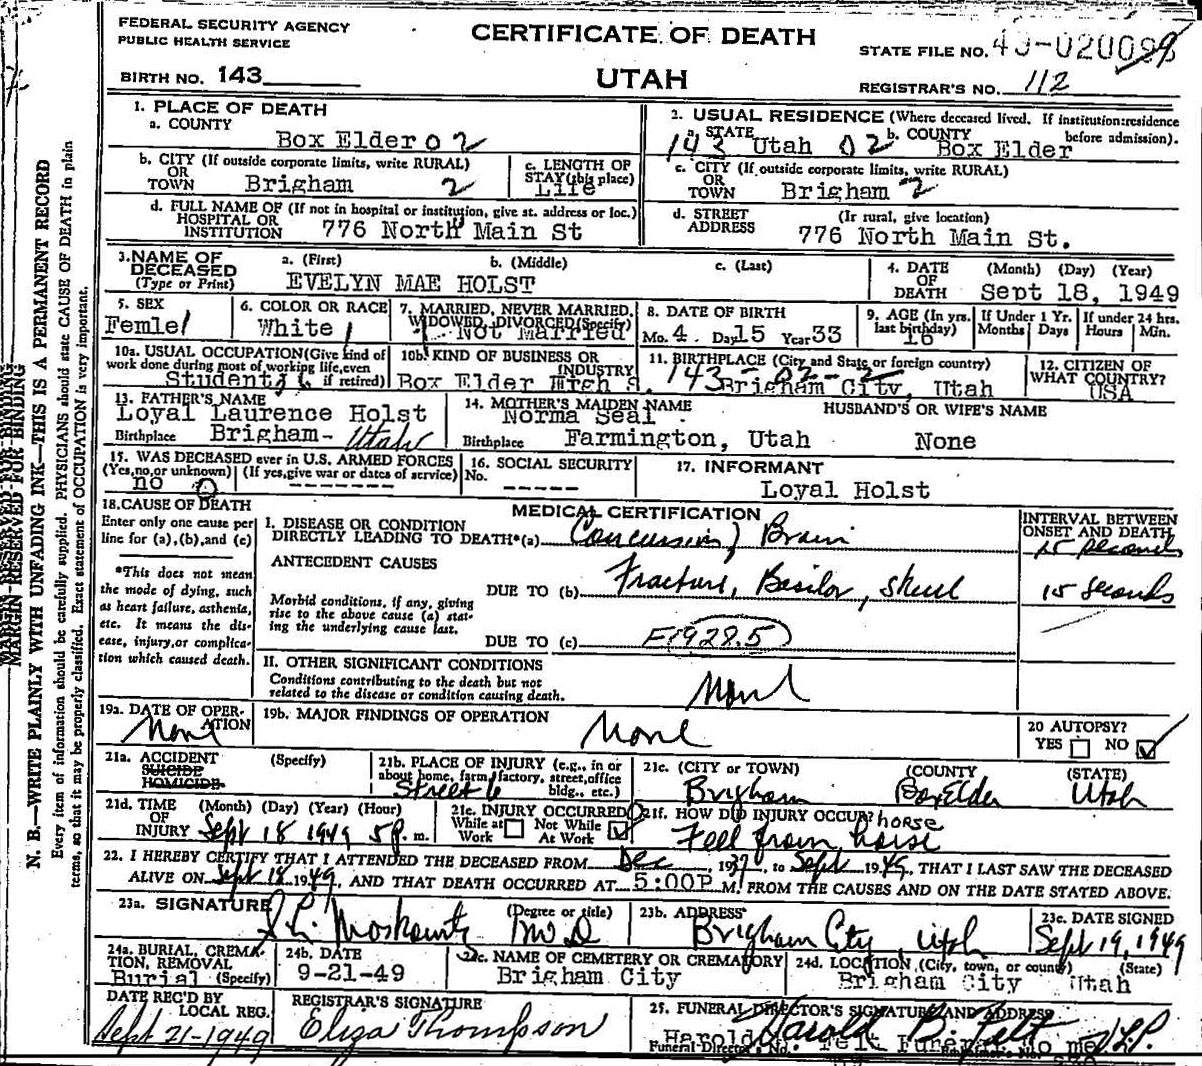 FEDERAL SECURITY AGENCY
PUBLIC HEALTH SERVICE
CERTIFICATE OF DEATH
STATE FILE NO.
BIRTH NO. 143
UTAH
REGISTRAR'S NO. 112
1. PLACE OF DEATH
a. COUNTY
Box Elder 02
2. USUAL RESIDENCE (Where deceased lived. If institution:residence before admission).
a. STATE 143 Utah 02 b. COUNTY Box Elder
b. CITY (If outside corporate limits, write RURAL)
OR TOWN Brigham 2
c. LENGTH OF STAY (this place)
Life
c. CITY (If outside corporate limits, write RURAL)
OR TOWN Brigham 2
d. FULL NAME OF (If not in hospital or institution, give st. address or loc.)
HOSPITAL OR INSTITUTION 776 North Main St
d. STREET ADDRESS (If rural, give location)
776 North Main St.
3. NAME OF DECEASED (Type or Print)
a. (First) b. (Middle) c. (Last)
EVELYN MAE HOLST
4. DATE OF DEATH (Month) (Day) (Year)
Sept 18, 1949
5. SEX
Femle 1
6. COLOR OR RACE
White 1
7. MARRIED, NEVER MARRIED, WIDOWED, DIVORCED(Specify)
1 Not Married
8. DATE OF BIRTH
Mo. 4 Day 15 Year 33
9. AGE (In yrs. last birthday)
16
If Under 1 Yr. Months Days
If under 24 hrs. Hours Min.
10a. USUAL OCCUPATION (Give kind of work done during most of working life, even if retired)
Student
10b. KIND OF BUSINESS OR INDUSTRY
Box Elder High S.
11. BIRTHPLACE (City and State or foreign country)
143-02-
Brigham City, Utah
12. CITIZEN OF WHAT COUNTRY?
USA
13. FATHER'S NAME
Loyal Laurence Holst
Birthplace Brigham- Utah
14. MOTHER'S MAIDEN NAME
Norma Seal
Birthplace Farmington, Utah
HUSBAND'S OR WIFE'S NAME
None
15. WAS DECEASED ever in U.S. ARMED FORCES
(Yes, no, or unknown) (If yes, give war or dates of service)
no 0 -------
16. SOCIAL SECURITY No.
-----
17. INFORMANT
Loyal Holst
18. CAUSE OF DEATH
Enter only one cause per line for (a), (b), and (c)
*This does not mean the mode of dying, such as heart failure, asthenia, etc. It means the disease, injury, or complication which caused death.
MEDICAL CERTIFICATION
INTERVAL BETWEEN ONSET AND DEATH
I. DISEASE OR CONDITION
DIRECTLY LEADING TO DEATH*(a) Concussion, Brain
15 seconds
ANTECEDENT CAUSES
DUE TO (b) Fracture, Basilar, skull
15 seconds
Morbid conditions, if any, giving rise to the above cause (a) stating the underlying cause last.
DUE TO (c) E1928.5
II. OTHER SIGNIFICANT CONDITIONS
Conditions contributing to the death but not related to the disease or condition causing death.
None
19a. DATE OF OPERATION
None
19b. MAJOR FINDINGS OF OPERATION
None
20 AUTOPSY?
YES NO
21a. ACCIDENT (Specify)
SUICIDE
HOMICIDE
21b. PLACE OF INJURY (e.g., in or about home, farm, factory, street, office bldg., etc.)
Street 6
21c. (CITY or TOWN) (COUNTY (STATE)
Brigham Box Elder Utah
21d. TIME OF INJURY (Month) (Day) (Year) (Hour)
Sept 18 1949 5P. m.
21e. INJURY OCCURRED
While at Work Not While At Work
21f. HOW DID INJURY OCCUR? horse
Fell from horse
22. I HEREBY CERTIFY THAT I ATTENDED THE DECEASED FROM Dec , 1937, to Sept 1949, THAT I LAST SAW THE DECEASED
ALIVE ON Sept 18 1949, AND THAT DEATH OCCURRED AT 5:00P M. FROM THE CAUSES AND ON THE DATE STATED ABOVE.
23a. SIGNATURE (Degree or title)
Moskowitz MD
23b. ADDRESS
Brigham City, Utah
23c. DATE SIGNED
Sept 19, 1949
24a. BURIAL, CREMATION, REMOVAL (Specify)
Burial
24b. DATE
9-21-49
24c. NAME OF CEMETERY OR CREMATORY
Brigham City
24d. LOCATION (City, town, or county) (State)
Brigham City Utah
DATE REC'D BY LOCAL REG.
Sept 21-1949
REGISTRAR'S SIGNATURE
Eliza Thompson
25. FUNERAL DIRECTOR'S SIGNATURE AND ADDRESS
Harold B. Felt
Harold Felt Funeral Home
Funeral Director's No.
MARGIN RESERVED FOR BINDING
N. B.—WRITE PLAINLY WITH UNFADING INK—THIS IS A PERMANENT RECORD
Every item of information should be carefully supplied. PHYSICIANS should state CAUSE OF DEATH in plain
terms, so that it may be properly classified. Exact statement of OCCUPATION is very important.